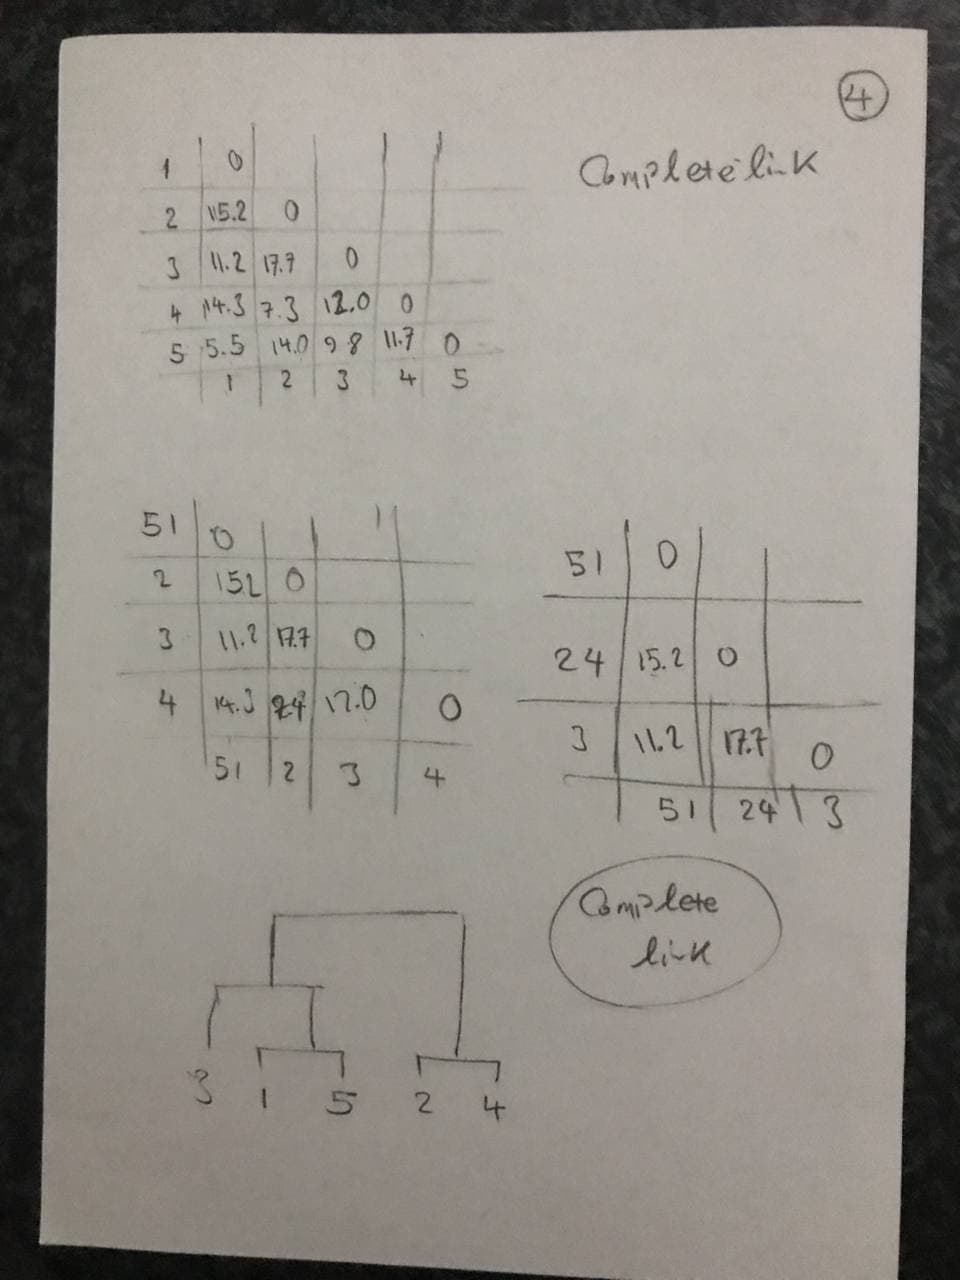 4
Complete link
1 0
2 15.2 0
3 11.2 17.7 0
4 14.3 7.3 12.0 0
5 5.5 14.0 9.8 11.7 0
1 2 3 4 5
51 0
2 15.2 0
3 11.2 17.7 0
4 14.3 12.0 0
51 2 3 4
51 0
24 15.2 0
3 11.2 17.7 0
51 24 3
Complete
link
3 1 5 2 4